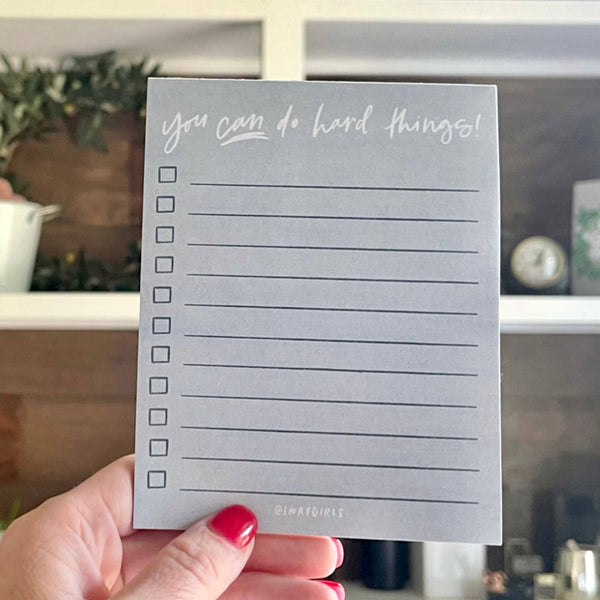 you can do hard things!
@SWAYGIRLS